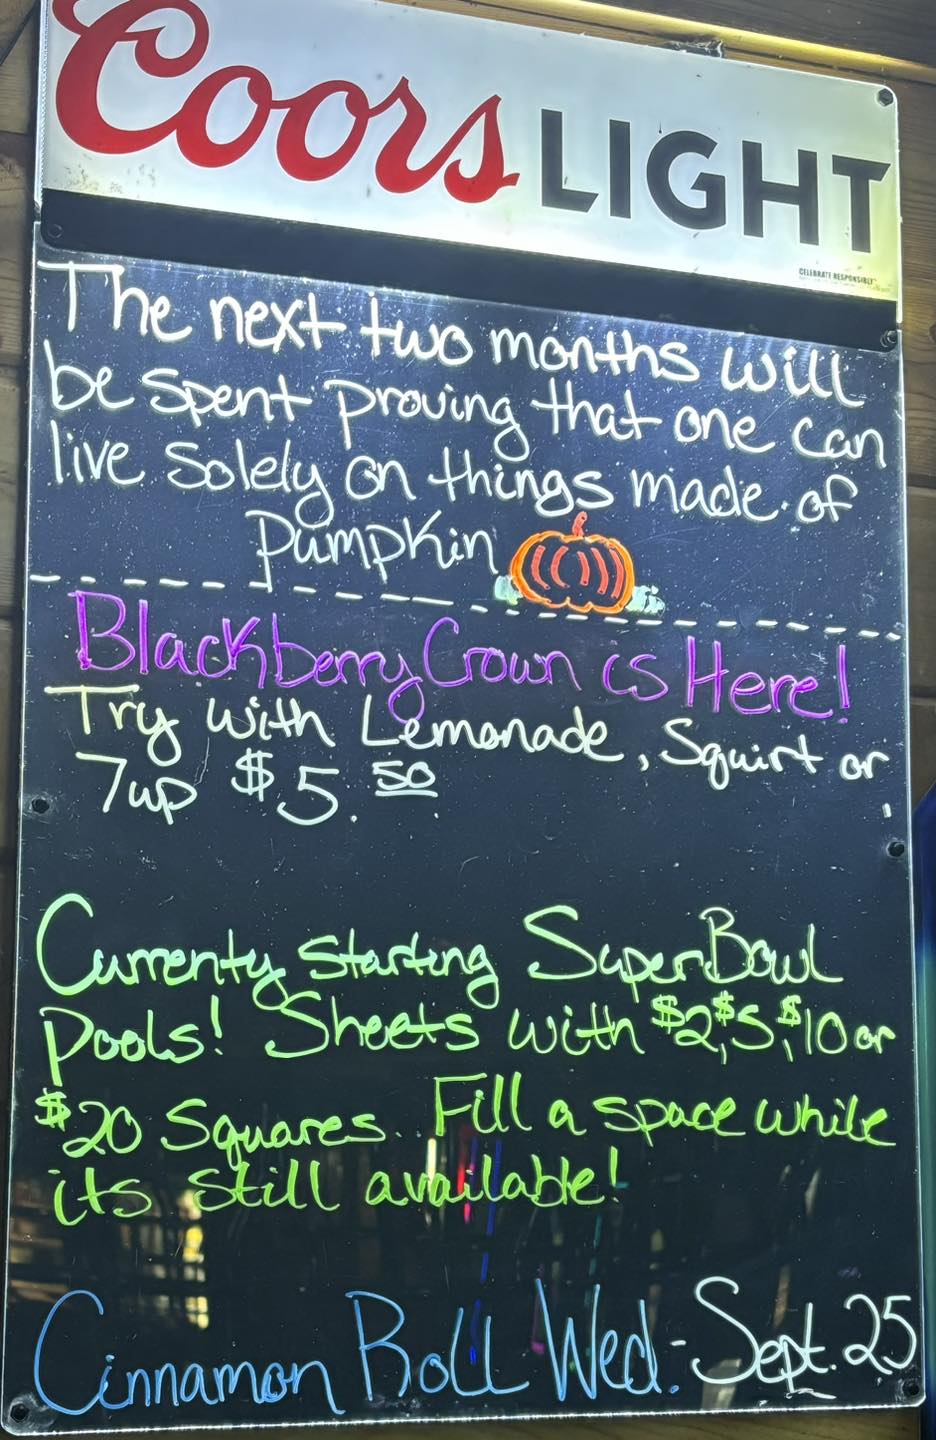 Coors LIGHT
CELEBRATE RESPONSIBLY
The next two months will
be spent proving that one can
live solely on things made of
Pumpkin
Blackberry Crown is Here!
Try with Lemonade, Squirt or
7up $5.50
Currenty starting SuperBowl
Pools! Sheets with $2,$5,$10 or
$20 Squares.. Fill a space while
its still available!
Cinnamon Roll Wed.-Sept. 25